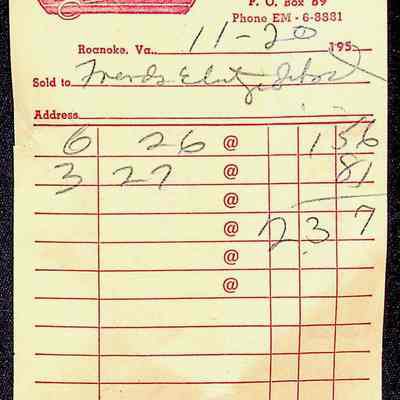 P. O. Box 89
Phone EM - 6-8881
Roanoke, Va.. 11-20 195
Sold to
Address
6 26 @ 1 56
3 27 @ 81
@ 2 3 7
@
@
@